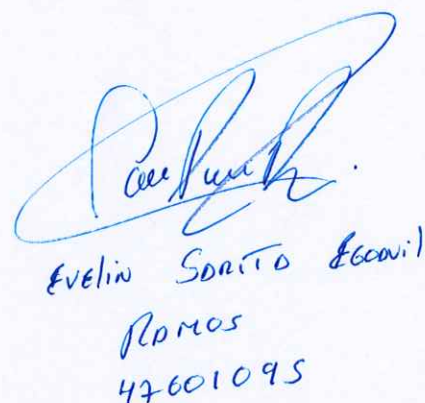 Evelin Sarita Egoavil
Ramos
47601095